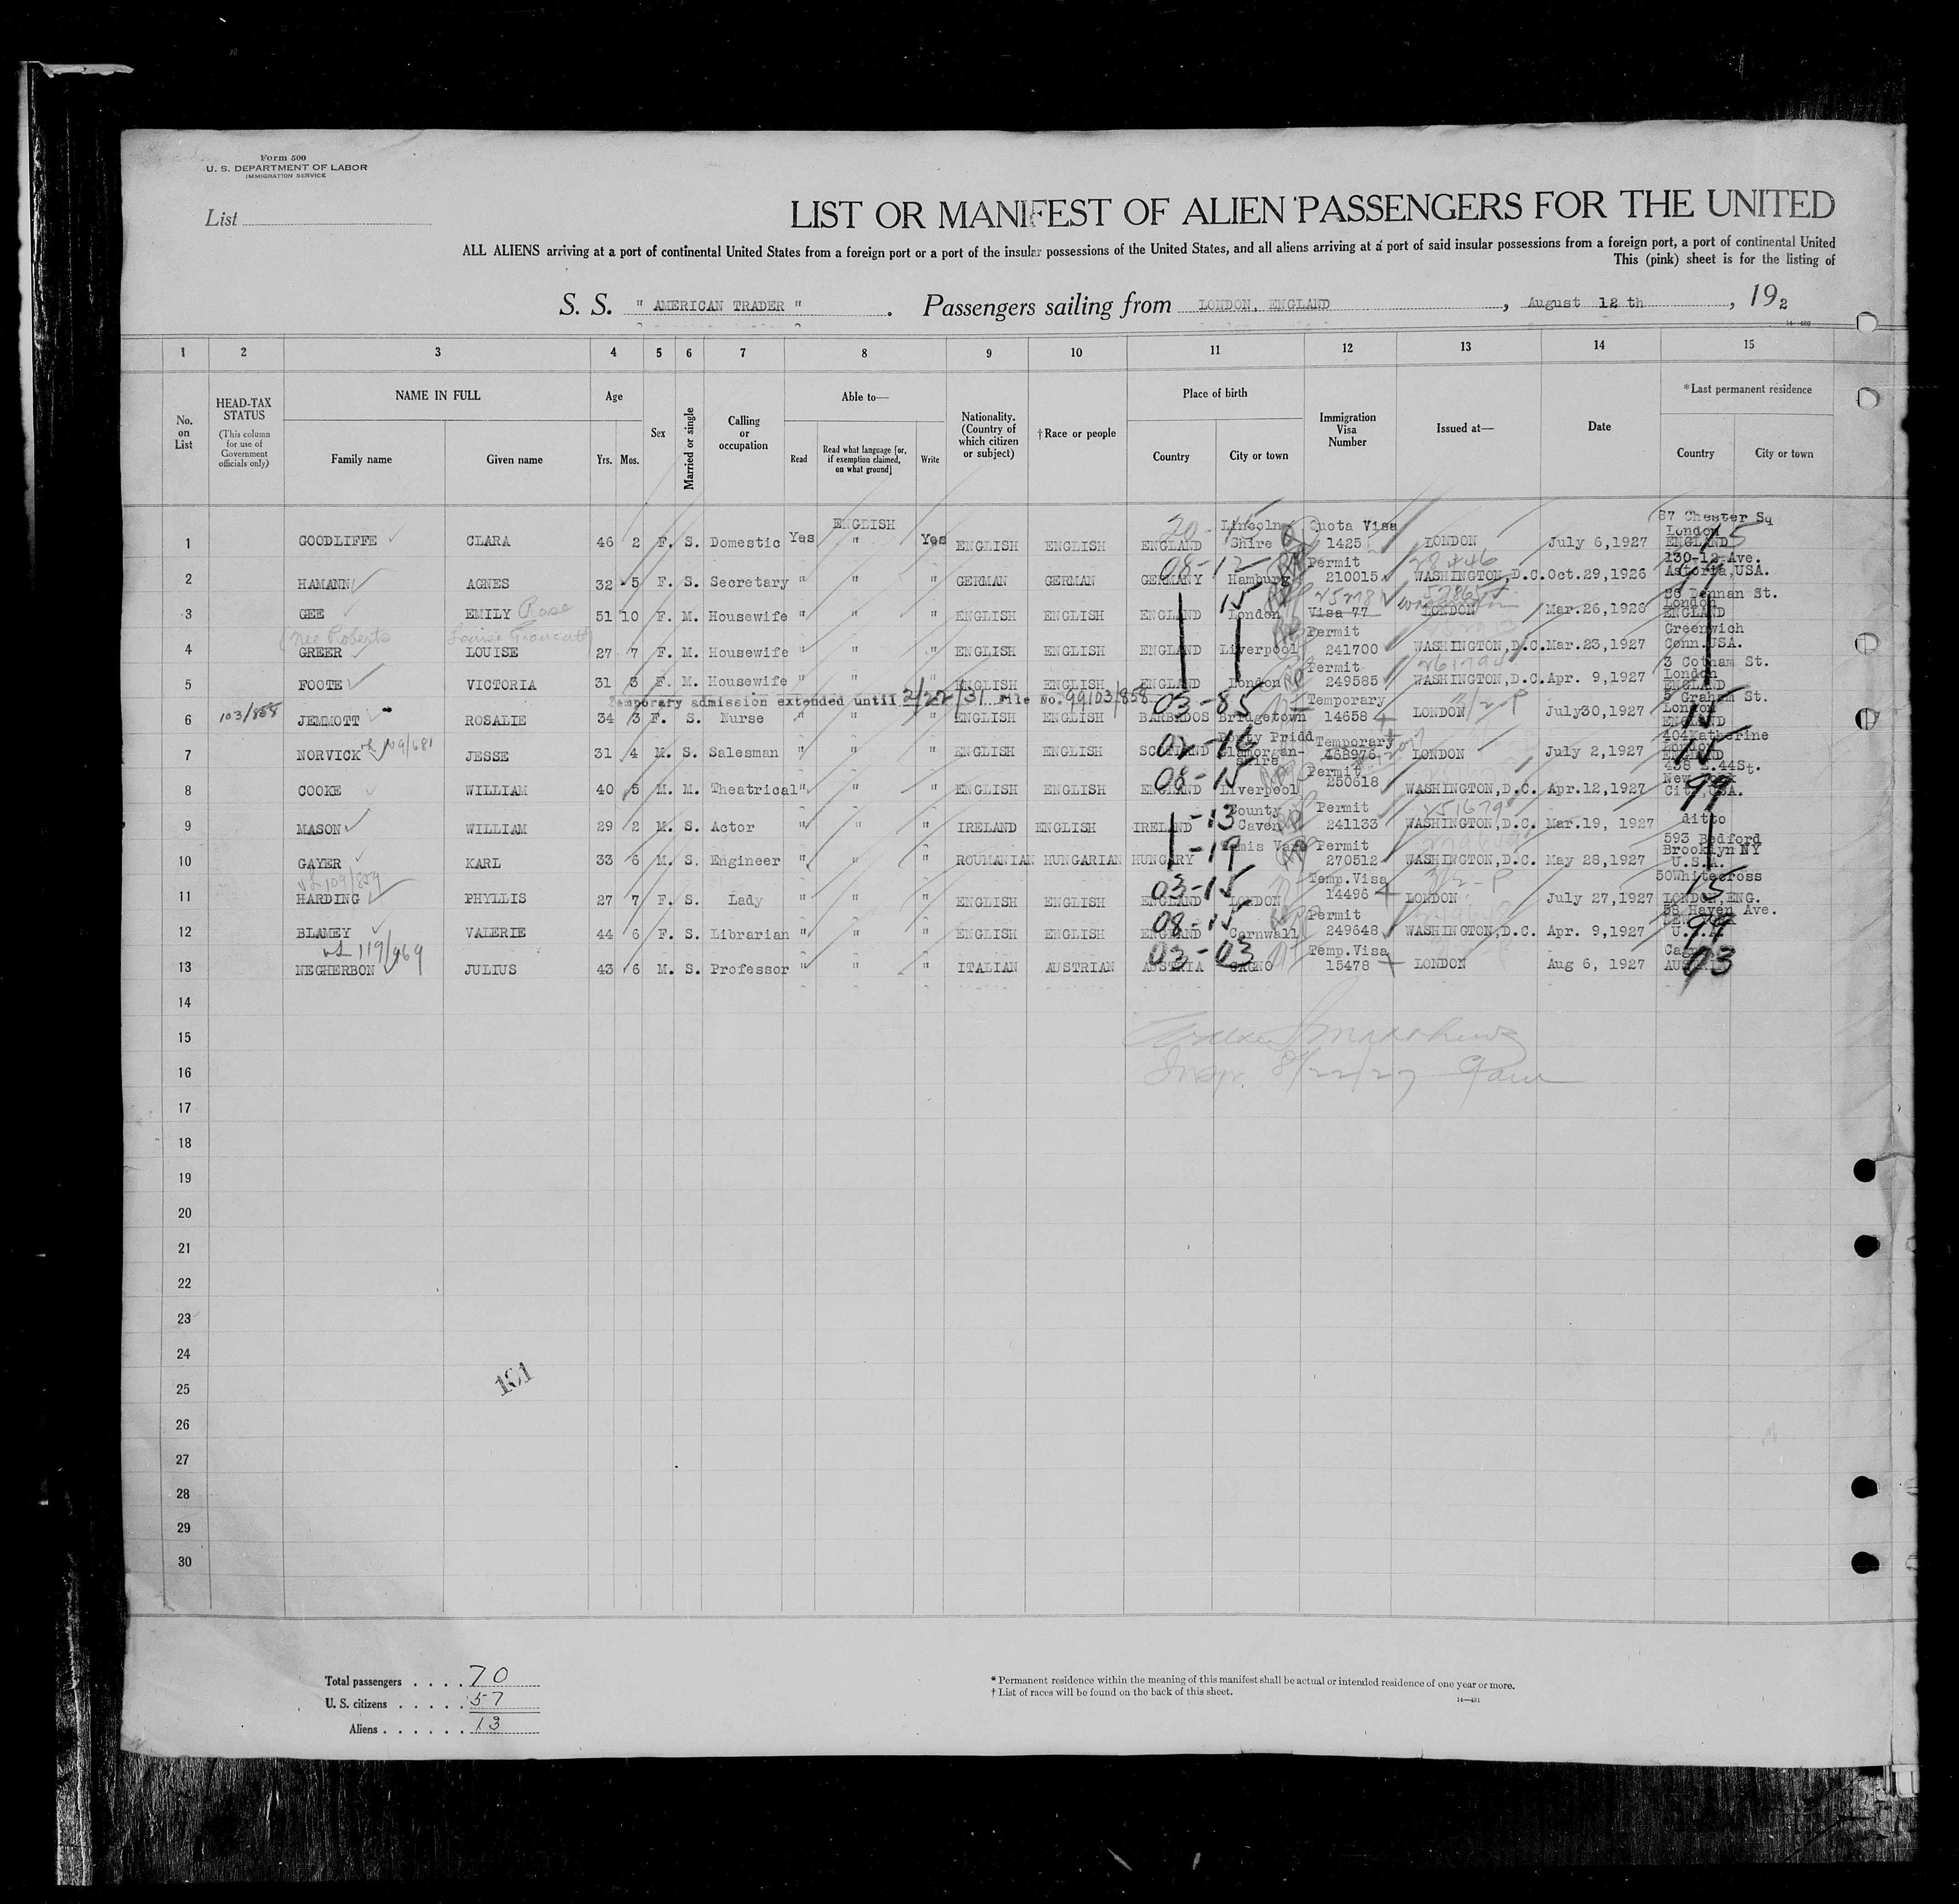 Form 500
U. S. DEPARTMENT OF LABOR
IMMIGRATION SERVICE
List
LIST OR MANIFEST OF ALIEN PASSENGERS FOR THE UNITED
ALL ALIENS arriving at a port of continental United States from a foreign port or a port of the insular possessions of the United States, and all aliens arriving at a port of said insular possessions from a foreign port, a port of continental United
This (pink) sheet is for the listing of
S. S. " AMERICAN TRADER " . Passengers sailing from LONDON, ENGLAND , August 12 th , 192
14-480
1 2 3 4 5 6 7 8 9 10 11 12 13 14 15
No. on List
HEAD-TAX STATUS
(This column for use of Government officials only)
NAME IN FULL
Family name Given name
Age
Yrs. Mos.
Sex
Married or single
Calling or occupation
Able to—
Read
Read what language [or, if exemption claimed, on what ground]
Write
Nationality. (Country of which citizen or subject)
†Race or people
Place of birth
Country City or town
Immigration Visa Number
Issued at—
Date
*Last permanent residence
Country City or town
1 GOODLIFFE CLARA 46 2 F. S. Domestic Yes ENGLISH " Yes ENGLISH ENGLISH ENGLAND Lincoln Shire Quota Visa 1425 LONDON July 6,1927 87 Chester Sq London ENGLAND
2 HAMANN AGNES 32 5 F. S. Secretary " " " GERMAN GERMAN GERMANY Hamburg Permit 210015 WASHINGTON,D.C. Oct.29,1926 130-12 Ave. Astoria,USA.
3 GEE EMILY Rose 51 10 F. M. Housewife " " " ENGLISH ENGLISH ENGLAND London Visa 77 LONDON Mar.26,1926 Denman St. London ENGLAND
(nee Roberts
4 GREER LOUISE 27 7 F. M. Housewife " " " ENGLISH ENGLISH ENGLAND Liverpool Permit 241700 WASHINGTON,D.C. Mar.23,1927 Greenwich Conn.USA.
5 FOOTE VICTORIA 31 3 F. M. Housewife " " " ENGLISH ENGLISH ENGLAND London Permit 249585 WASHINGTON,D.C. Apr. 9,1927 3 Cotham St. London ENGLAND
Temporary admission extended until 2/22/31 File No. 99103/858
103/858
6 JEMMOTT ROSALIE 34 3 F. S. Nurse " " " ENGLISH ENGLISH BARBADOS Bridgetown Temporary 14658 LONDON July30,1927 Graham St. London ENGLAND
03-85 15
7 NORVICK 109/681 JESSE 31 4 M. S. Salesman " " " ENGLISH ENGLISH SCOTLAND Pridd Glamorgan-shire Temporary 468976 LONDON July 2,1927 404Katherine London ENGLAND
8 COOKE WILLIAM 40 5 M. M. Theatrical " " " ENGLISH ENGLISH ENGLAND Liverpool Permit 250618 WASHINGTON,D.C. Apr.12,1927 438 E.44St. New York City,USA.
08-15 99
9 MASON WILLIAM 29 2 M. S. Actor " " " IRELAND ENGLISH IRELAND County Caven Permit 241133 WASHINGTON,D.C. Mar.19, 1927 ditto
-13
10 GAYER KARL 33 6 M. S. Engineer " " " ROUMANIAN HUNGARIAN HUNGARY Permit 270512 WASHINGTON,D.C. May 28,1927 593 Bedford Brooklyn NY U.S.A.
-19
109/859
11 HARDING PHYLLIS 27 7 F. S. Lady " " " ENGLISH ENGLISH ENGLAND LONDON Temp.Visa 14496 LONDON July 27,1927 50Whitecross LONDON,ENG.
03-15 15
12 BLAMEY VALERIE 44 6 F. S. Librarian " " " ENGLISH ENGLISH ENGLAND Cornwall Permit 249648 WASHINGTON,D.C. Apr. 9,1927 58 Haven Ave. U.S.A.
08-15 99
119/969
13 NEGHERBON JULIUS 43 6 M. S. Professor " " " ITALIAN AUSTRIAN AUSTRIA CAGNO Temp.Visa 15478 LONDON Aug 6, 1927
03-03 03
14
15
16
Insp. 8/22/27
17
18
19
20
21
22
23
24
25
26
27
28
29
30
101
Total passengers . . . . 70
U. S. citizens . . . . . 57
Aliens . . . . . . 13
* Permanent residence within the meaning of this manifest shall be actual or intended residence of one year or more.
† List of races will be found on the back of this sheet.
14—431